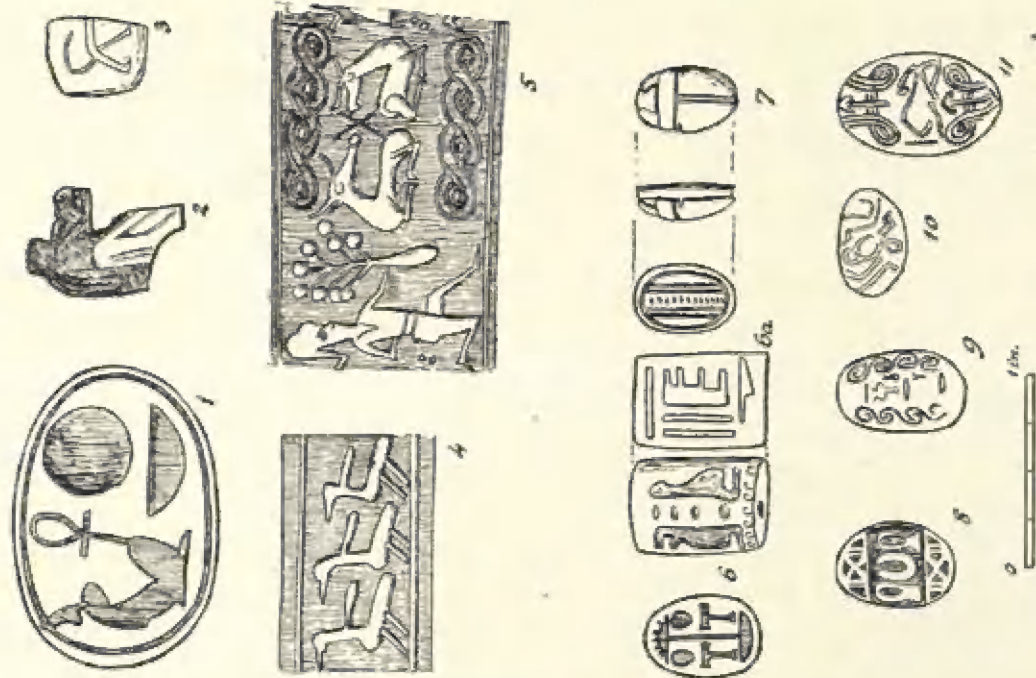 1 2 3
4 5
6 6a. 7
8 9 10 11
0 1 in.